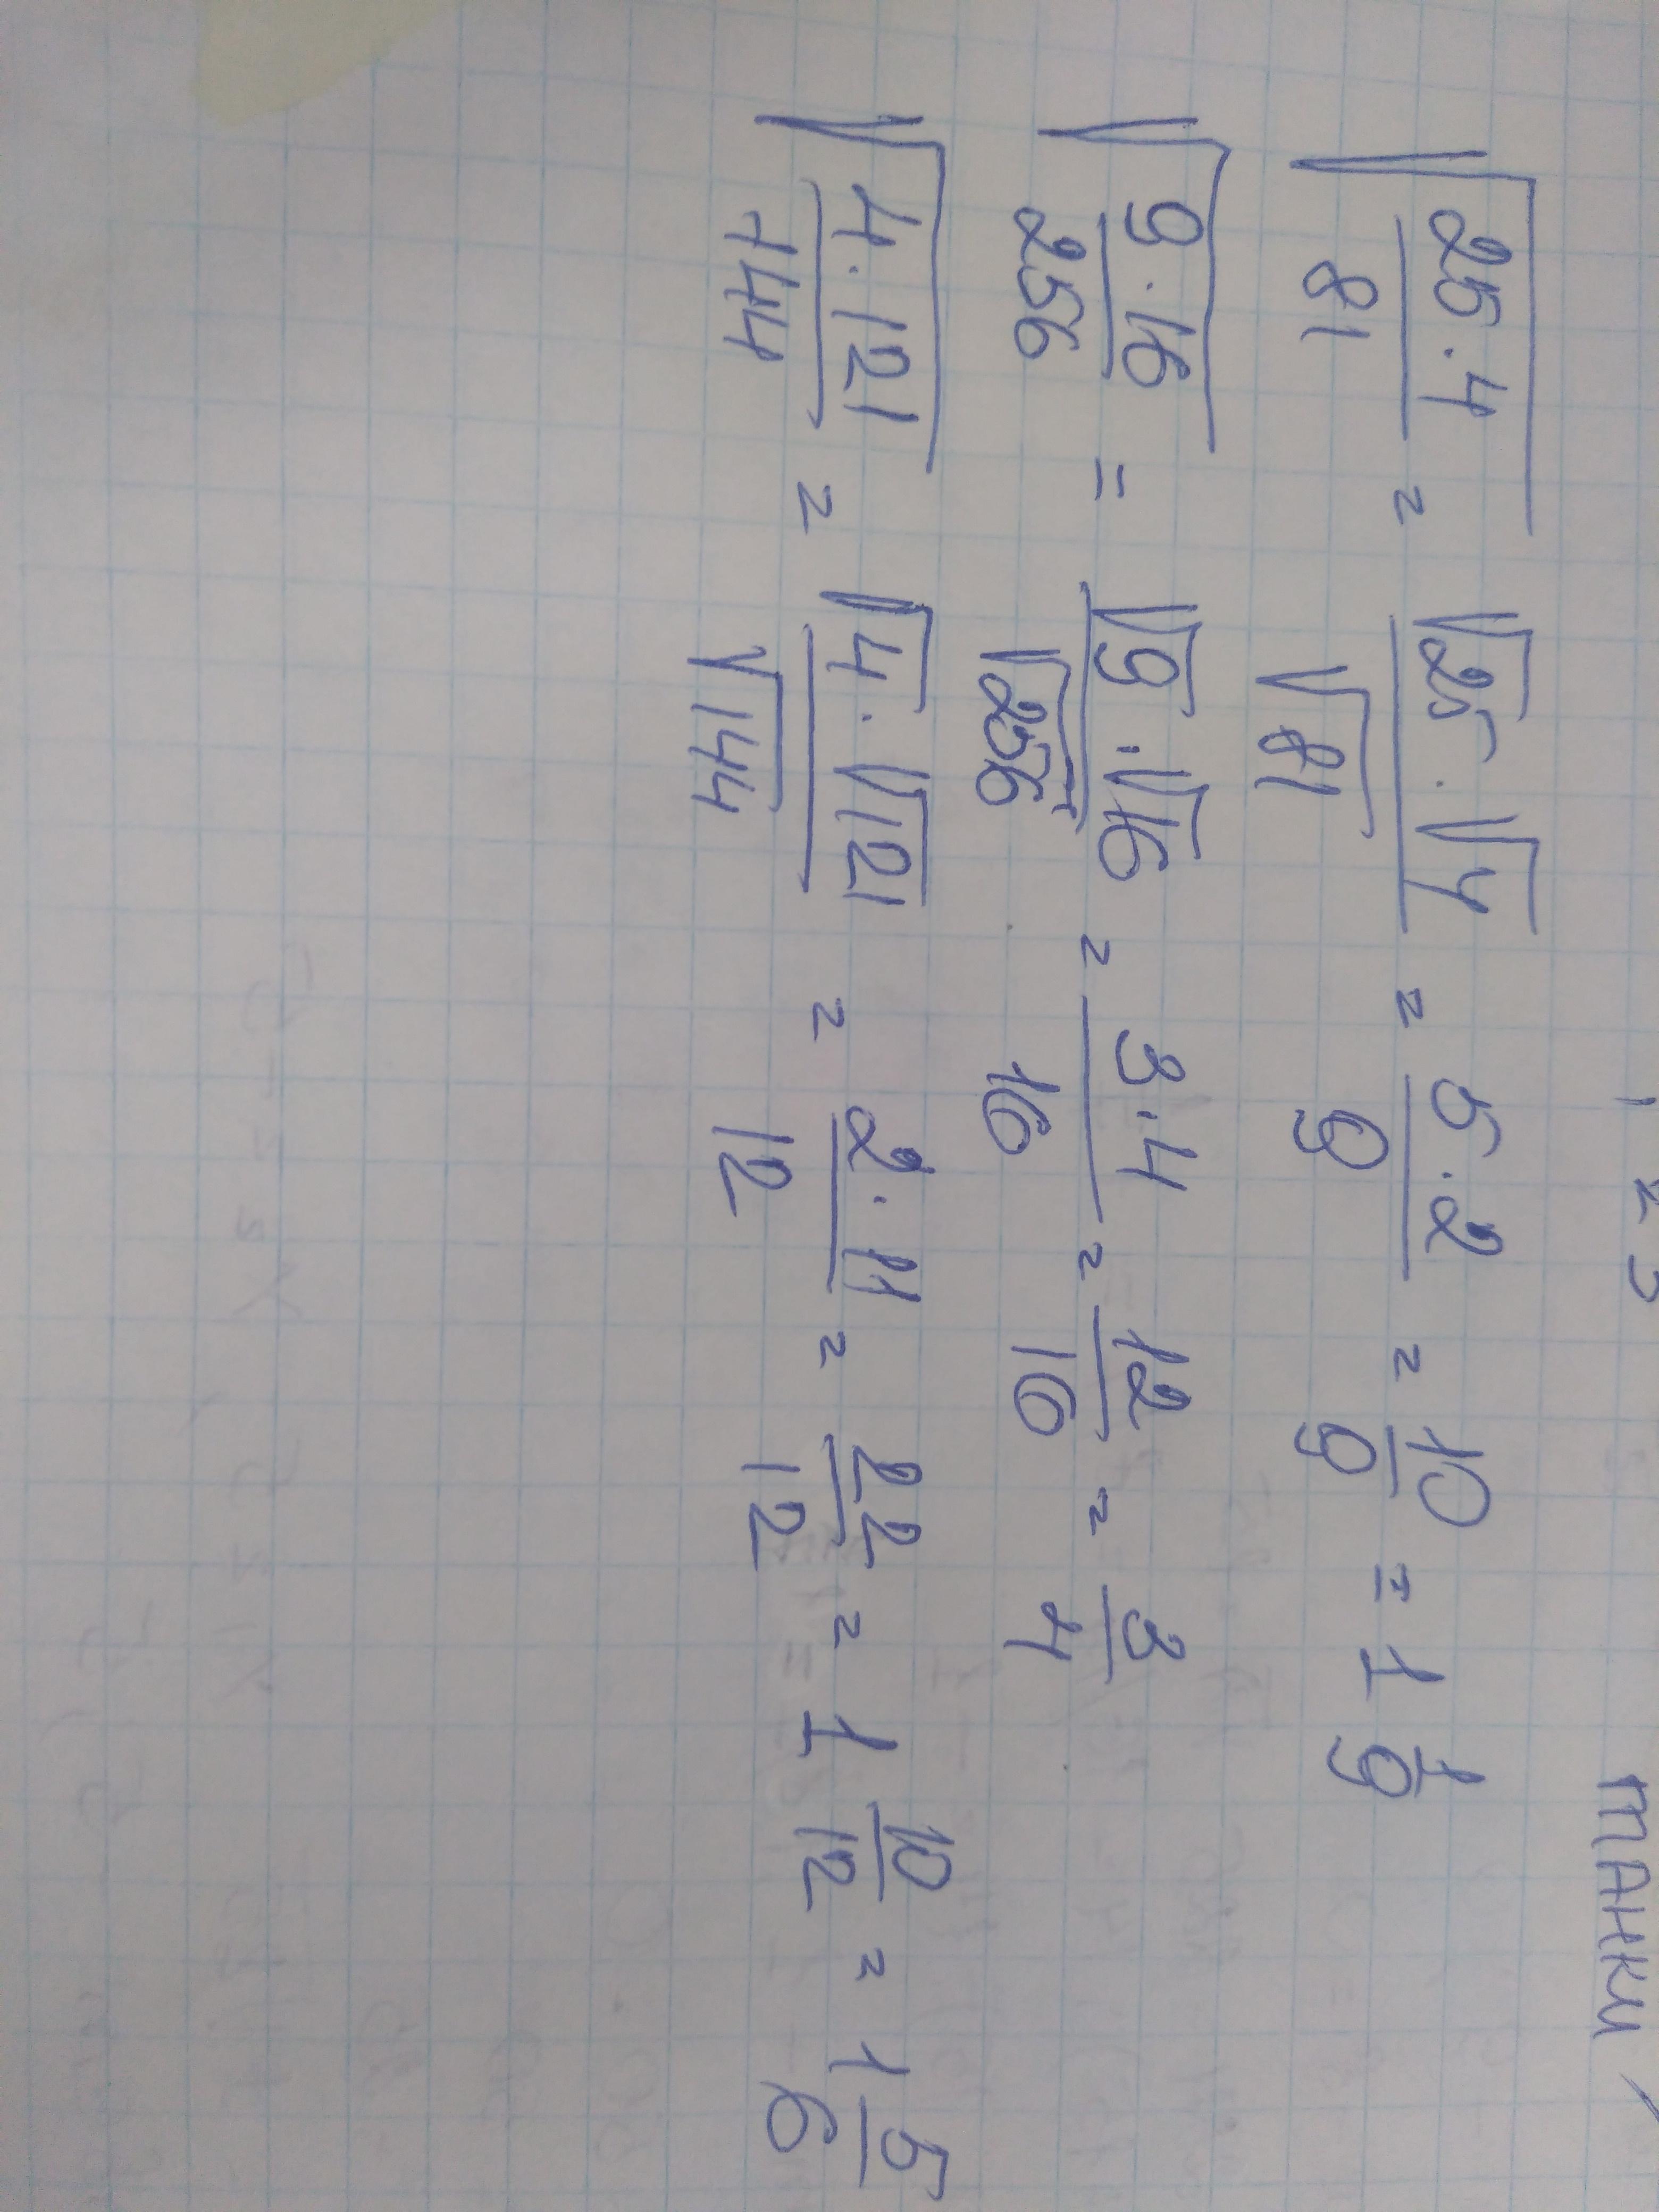 танки
√(25·4/81) = √25·√4/√81 = 5·2/9 = 10/9 = 1 1/9
√(9·16/256) = √9·√16/√256 = 3·4/16 = 12/16 = 3/4
√(4·121/144) = √4·√121/√144 = 2·11/12 = 22/12 = 1 10/12 = 1 5/6